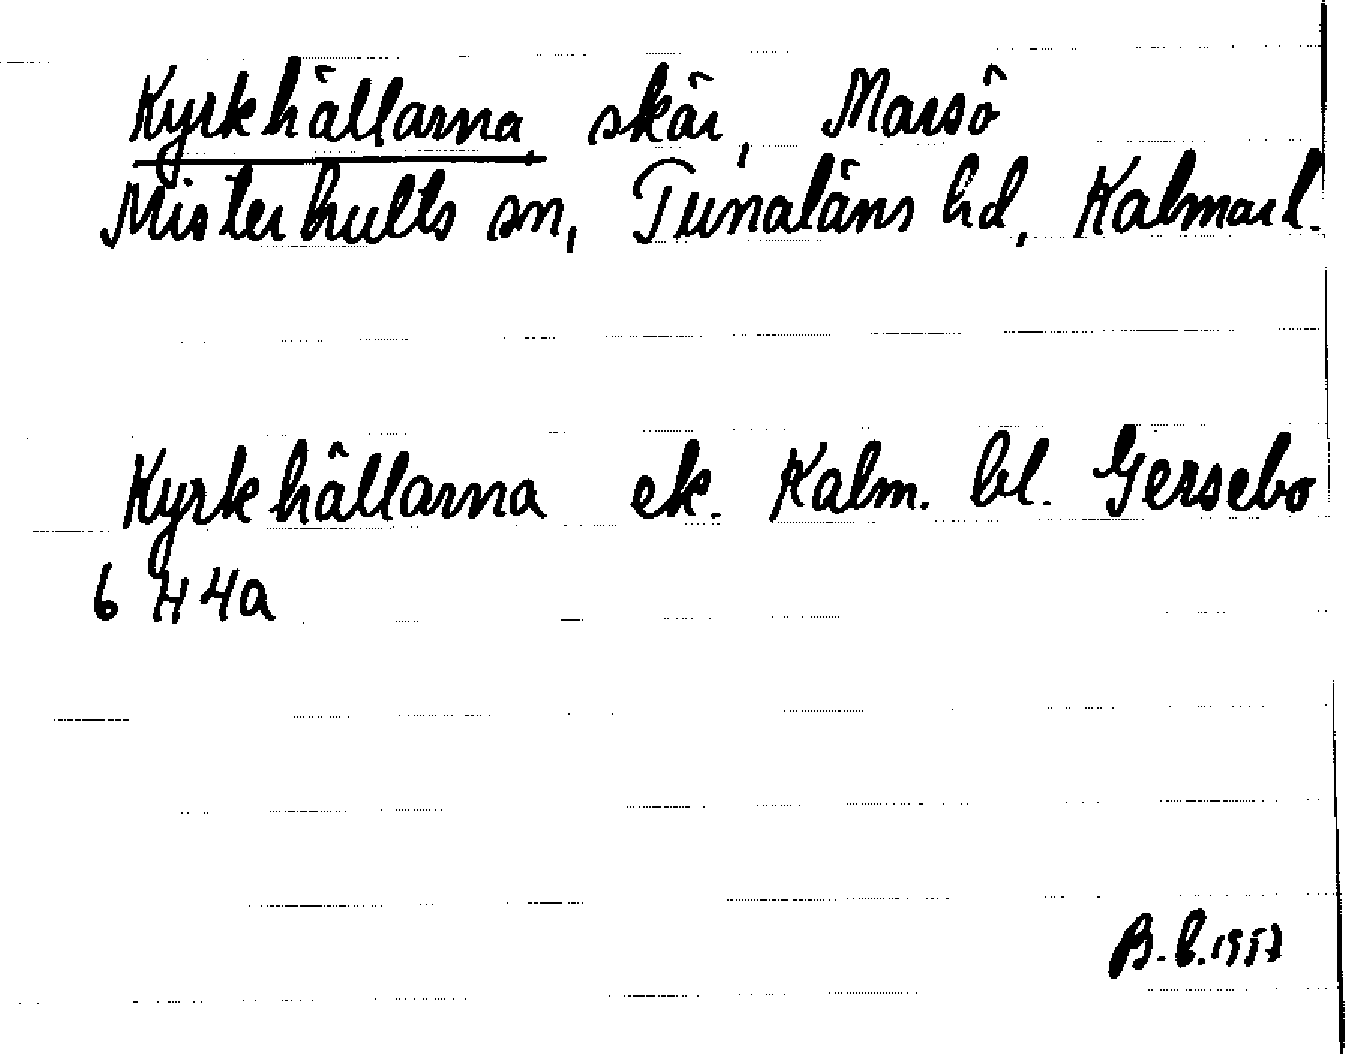 Kyrkhällarna skär, Marsö
Misterhults sn, Tunaläns hd, Kalmar l.
Kyrkhällarna ek. Kalm. bl. Gersebo
6 H 4a
B. 1957